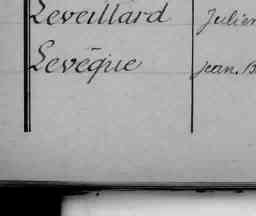 Leveillard Julien
Levêque Jean. B